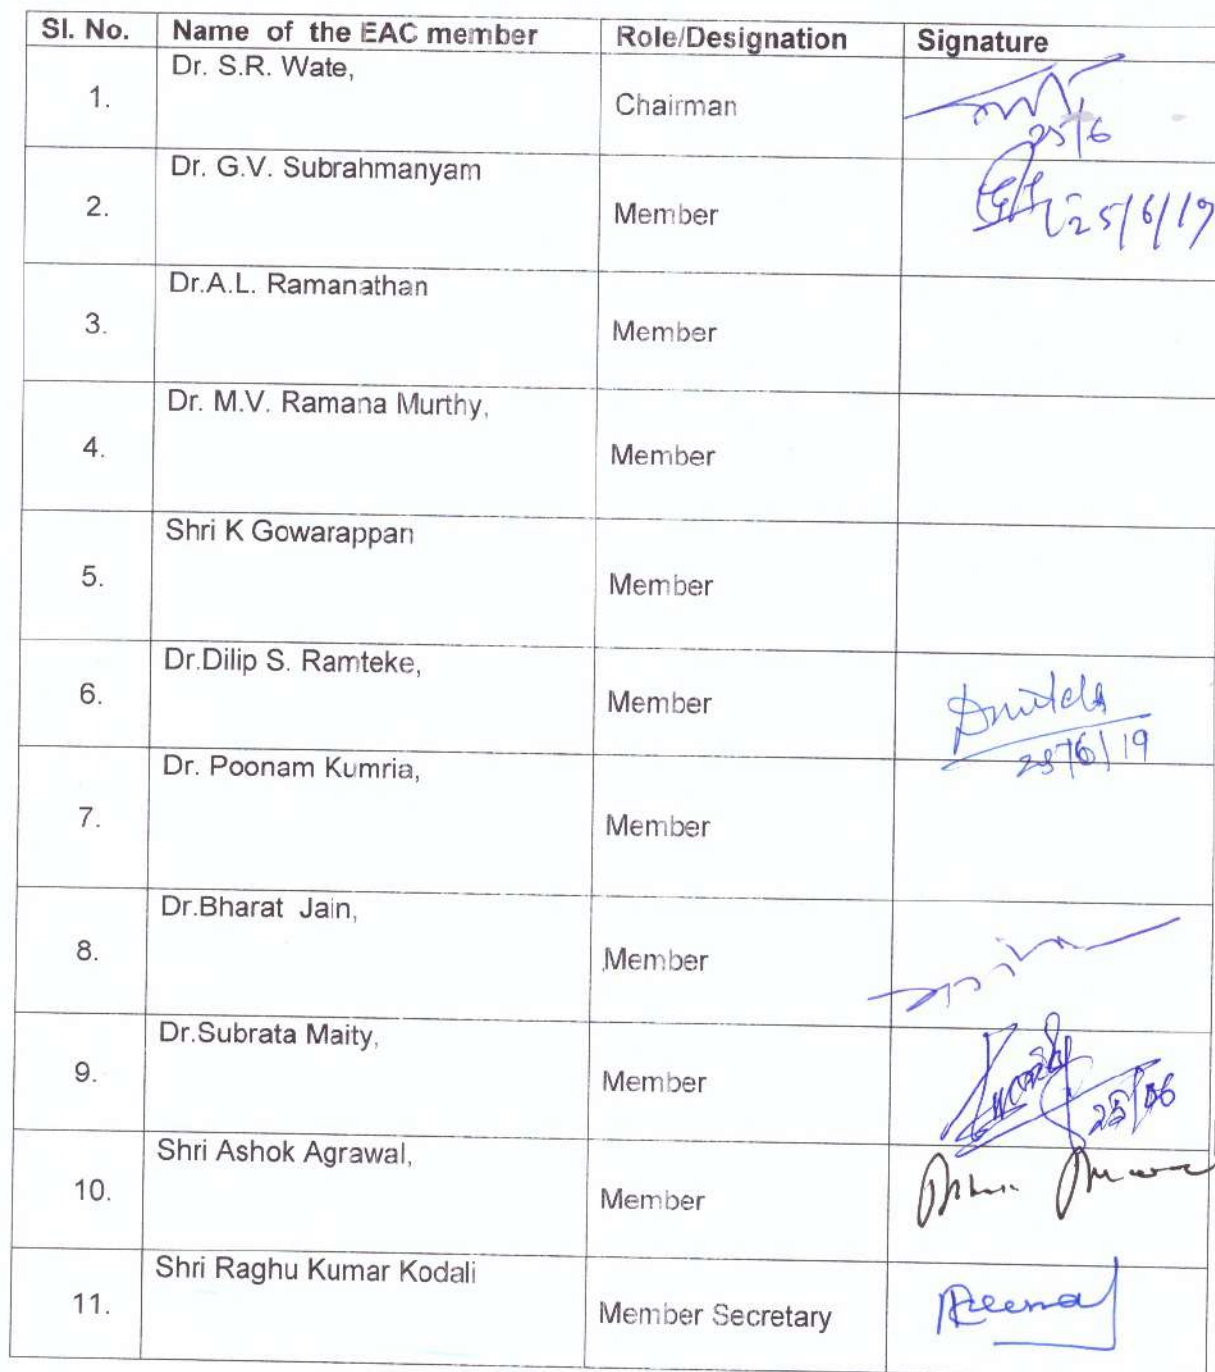 Sl. No. Name of the EAC member Role/Designation Signature
1. Dr. S.R. Wate, Chairman
25/6
2. Dr. G.V. Subrahmanyam Member 25/6/19
3. Dr.A.L. Ramanathan Member
4. Dr. M.V. Ramana Murthy, Member
5. Shri K Gowarappan Member
6. Dr.Dilip S. Ramteke, Member
25/6/19
7. Dr. Poonam Kumria, Member
8. Dr.Bharat Jain, Member
9. Dr.Subrata Maity, Member 25/06
10. Shri Ashok Agrawal, Member
11. Shri Raghu Kumar Kodali Member Secretary